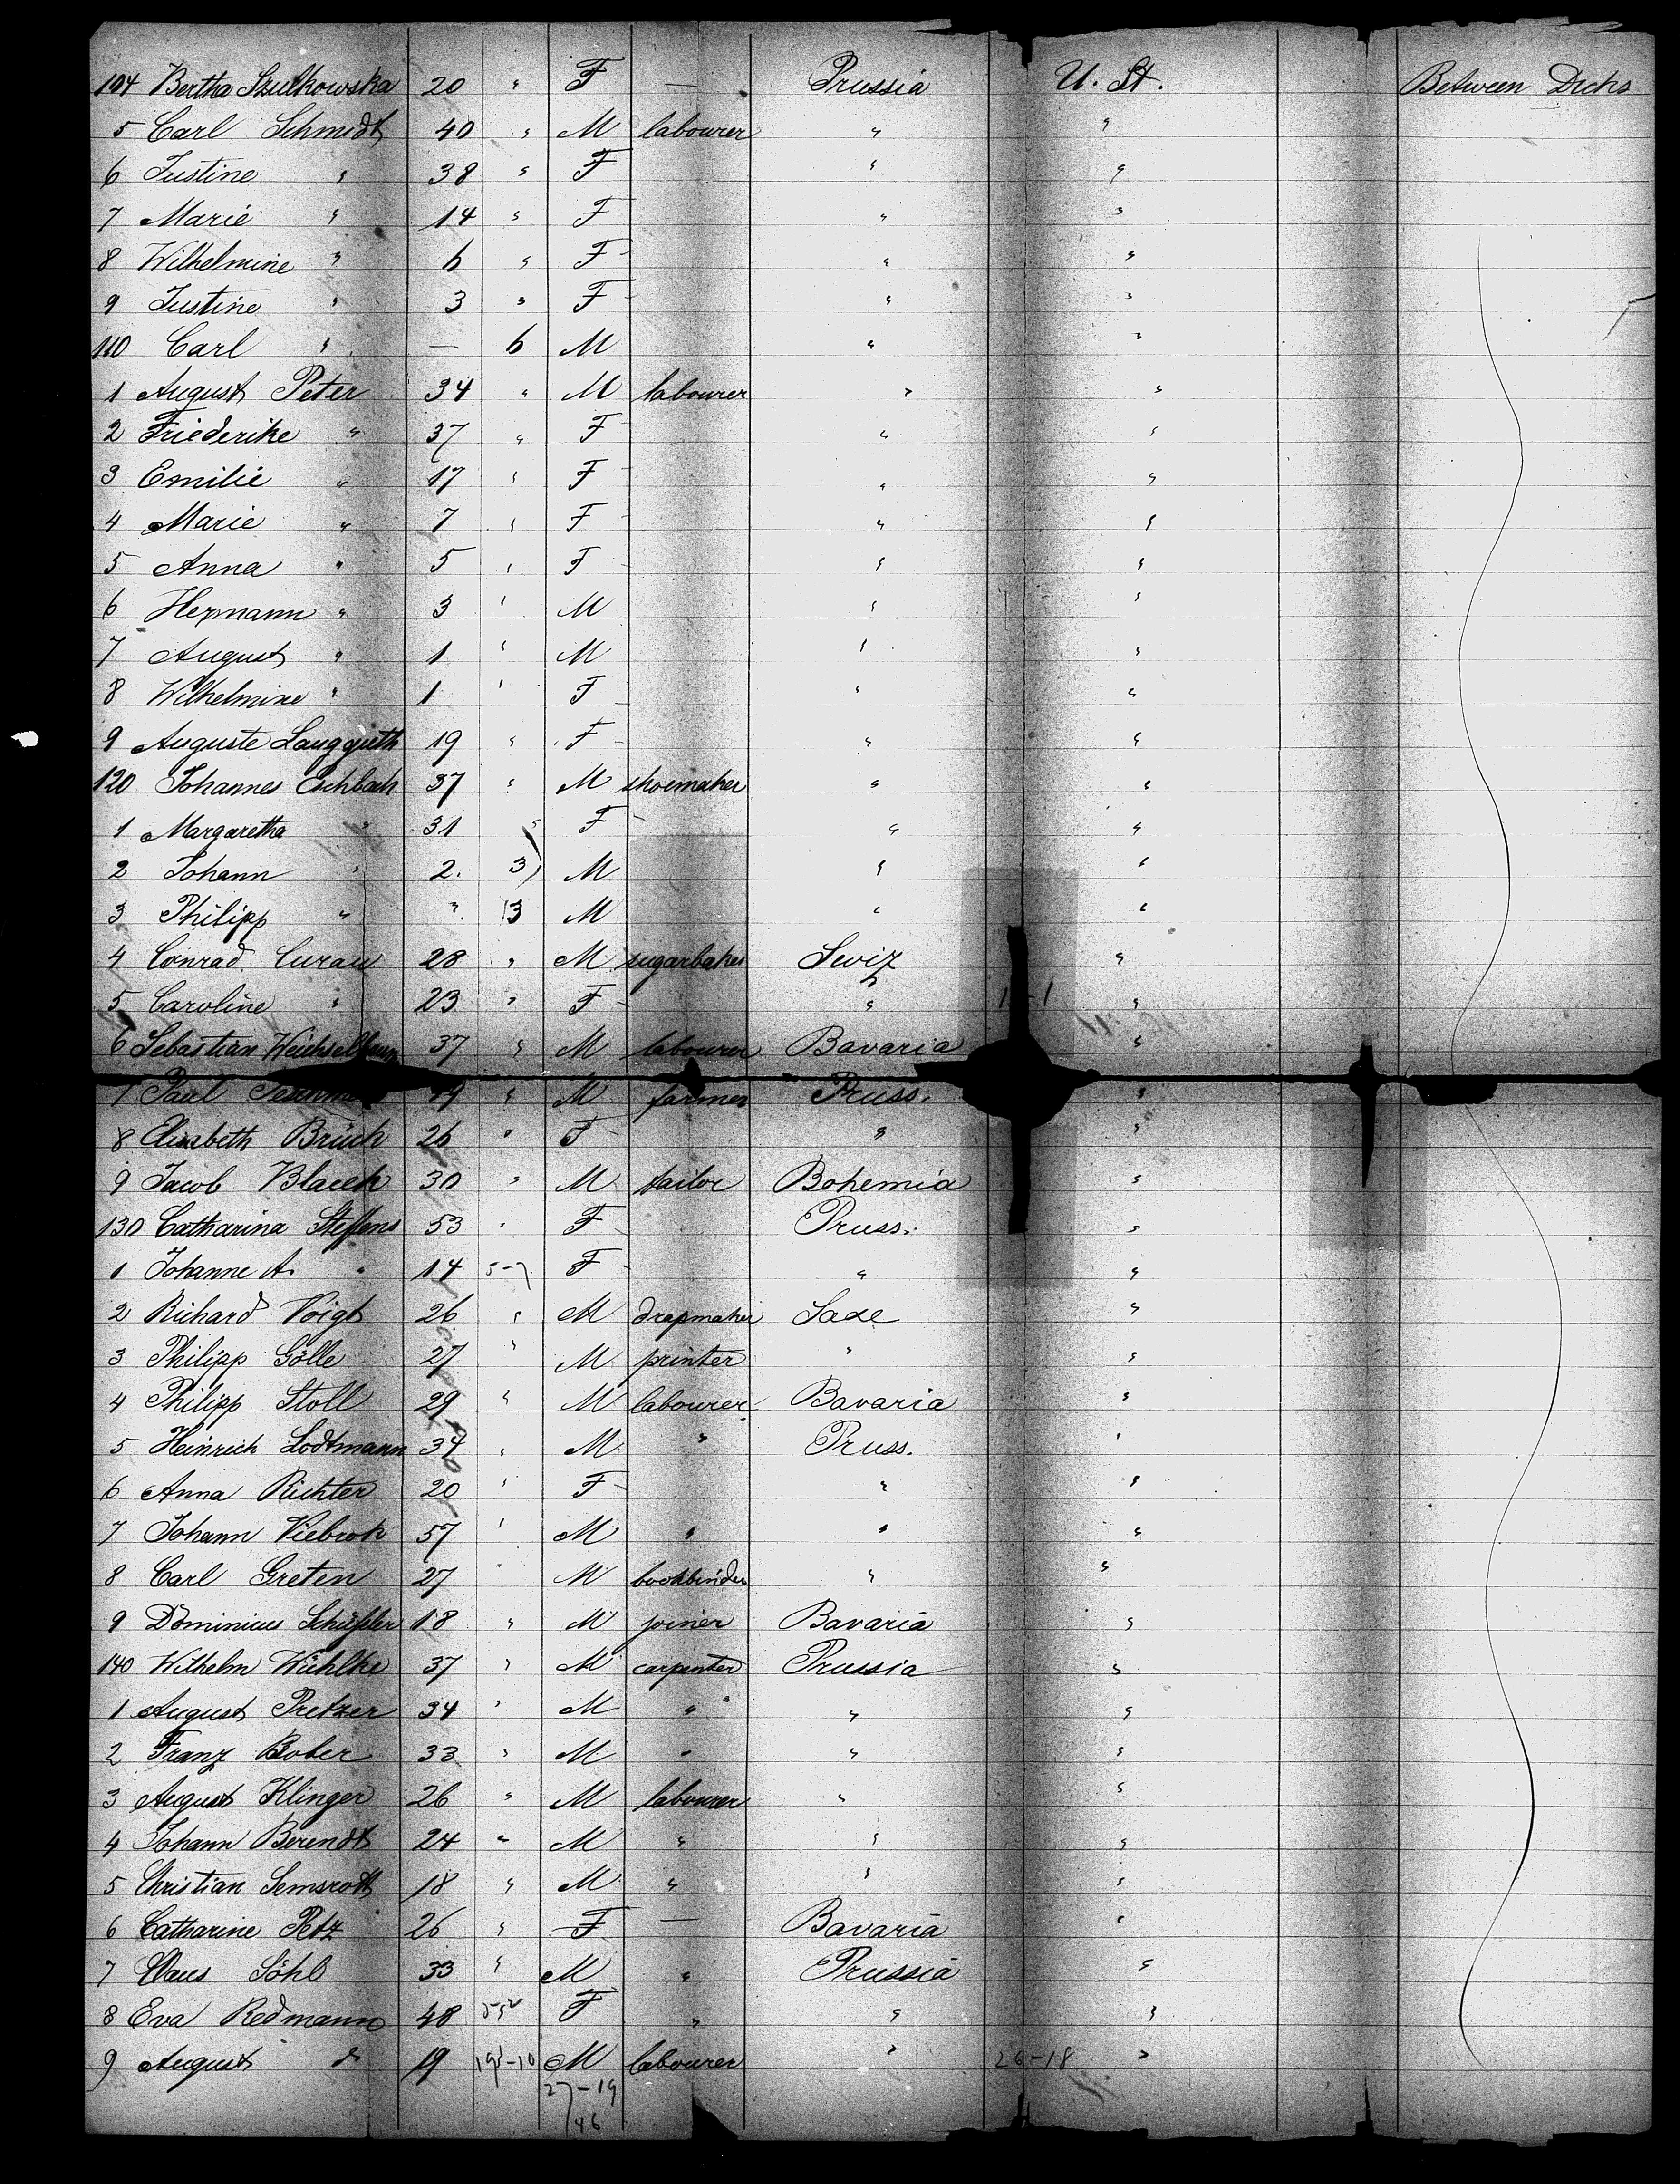 104 Bertha Szulkowska 20 " F — Prussia U. St. Between Decks
5 Carl Schmidt 40 " M labourer " "
6 Justine " 38 " F " "
7 Marie " 14 " F " "
8 Wilhelmine " 6 " F " "
9 Justine " 3 " F " "
110 Carl " — 6 M " "
1 August Peter 34 " M labourer " "
2 Friederike " 37 " F " "
3 Emilie " 17 " F " "
4 Marie " 7 " F " "
5 Anna " 5 " F " "
6 Hermann " 3 " M " "
7 August " 1 " M " "
8 Wilhelmine " 1 " F " "
9 Auguste Langguth 19 " F " "
120 Johannes Eschbach 37 " M shoemaker " "
1 Margaretha " 31 " F " "
2 Johann " 2. 3 M " "
3 Philipp " " 3 M " "
4 Conrad Curau 28 " M sugarbaker Swiz "
5 Caroline " 23 " F " "
6 Sebastian 37 " M labourer Bavaria "
7 Paul 19 " M farmer Pruss. "
8 Elisabeth Brück 26 " F " "
9 Jacob Blacek 30 " M tailor Bohemia "
130 Catharina Steffens 53 " F Pruss. "
1 Johanne A. " 14 F " "
2 Richard Voigt 26 " M drapmaker Saxe "
3 Philipp Gölle 27 " M printer " "
4 Philipp Stoll 29 " M labourer Bavaria "
5 Heinrich Lodtmann 34 " M " Pruss. "
6 Anna Richter 20 " F " "
7 Johann Viebrok 57 " M " " "
8 Carl Greten 27 " M bookbinder " "
9 Dominicus Schüßler 18 " M joiner Bavaria "
140 Wilhelm Wühlke 37 " M carpenter Prussia "
1 August Pretzer 34 " M " " "
2 Franz Bober 33 " M " " "
3 August Klinger 26 " M labourer " "
4 Johann Berendt 24 " M " " "
5 Christian Semsroth 18 " M " " "
6 Catharine Petz 26 " F — Bavaria "
7 Claus Söhl 33 " M " Prussia "
8 Eva Redmann 48 F " " "
9 August " 19 M labourer " 26-18 "
27-19
46